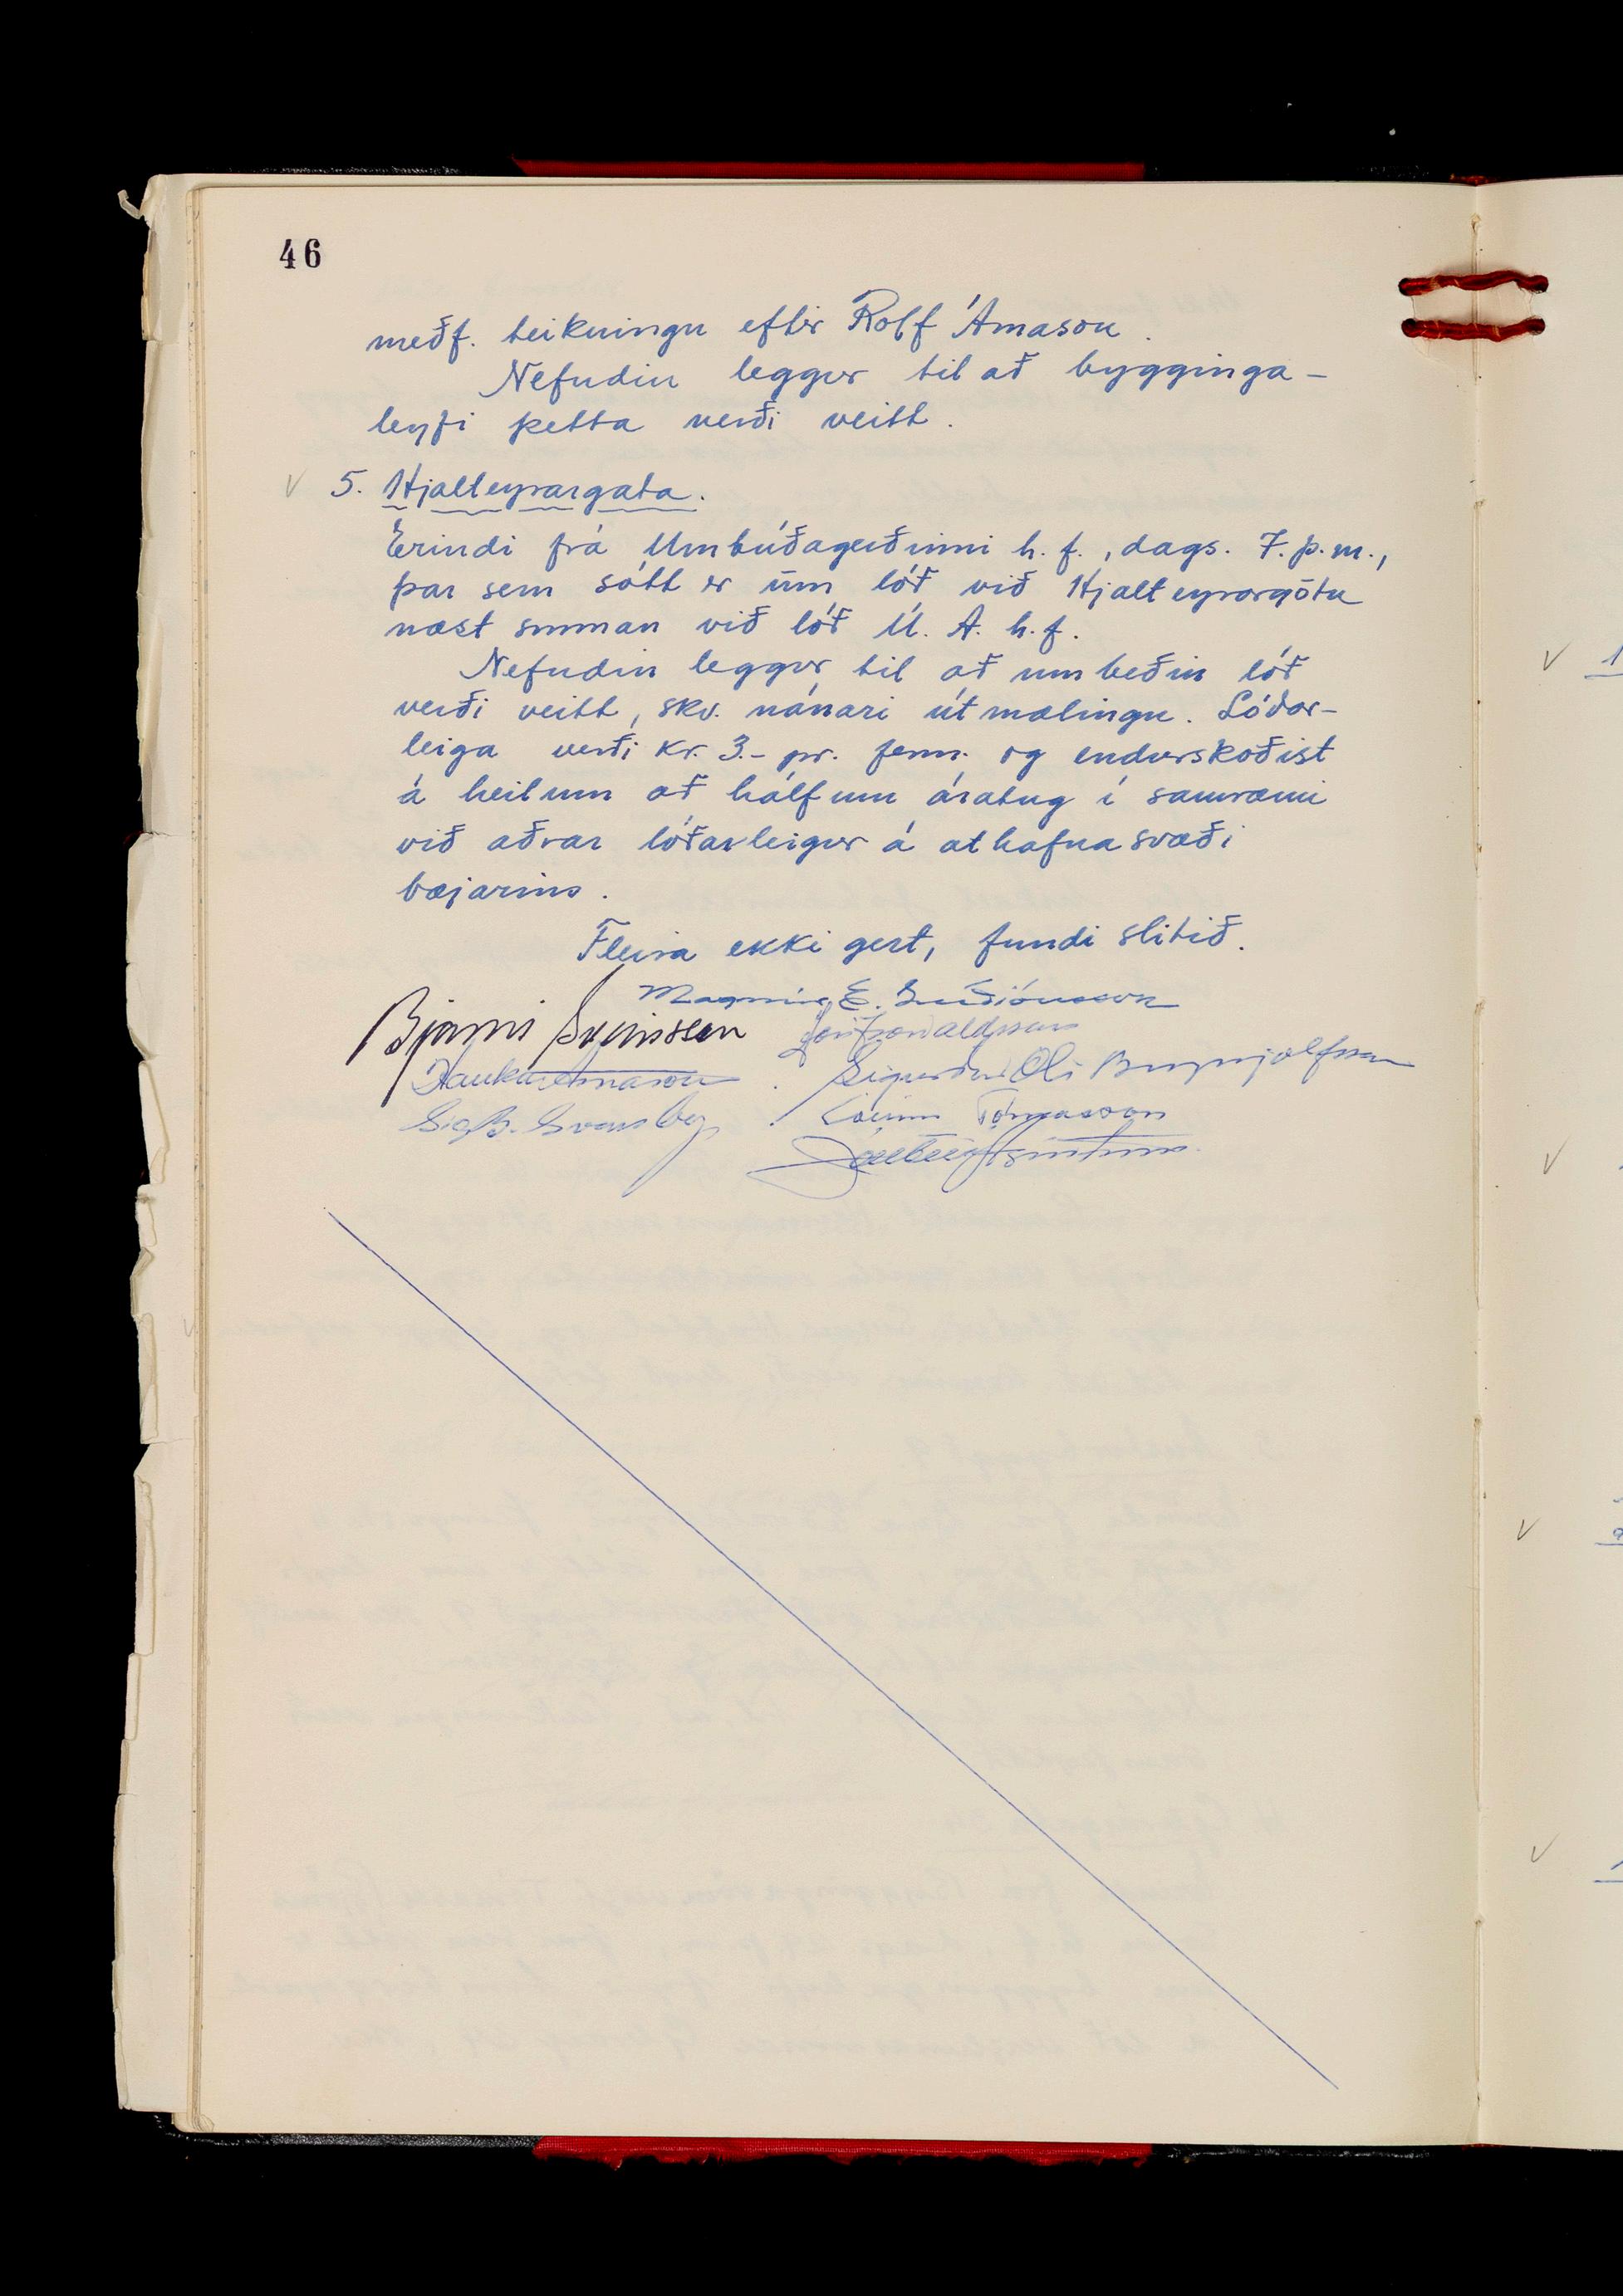 46
meðf. teikningu eftir Rolf Árnason.
Nefndin leggur til að bygginga-
leyfi þetta verði veitt.
5. Hjalteyrargata.
Erindi frá Umbúðagerðinni h.f., dags. 7. þ.m.,
þar sem sótt er um lóð við Hjalteyrargötu
næst sunnan við lóð Ú. A. h.f.
Nefndin leggur til að umbeðin lóð
verði veitt, skv. nánari útmælingu. Lóðar-
leiga verði kr. 3.- pr. ferm. og endurskoðist
á heilum að hálfum áratug í samræmi
við aðrar lóðarleigur á athafnasvæði
bæjarins.
Fleira ekki gert, fundi slitið.
Magnús E. Guðjónsson
Bjarni Sveinsson
Haukur Árnason
Sigurður Óli Brynjólfsson
Tómasson